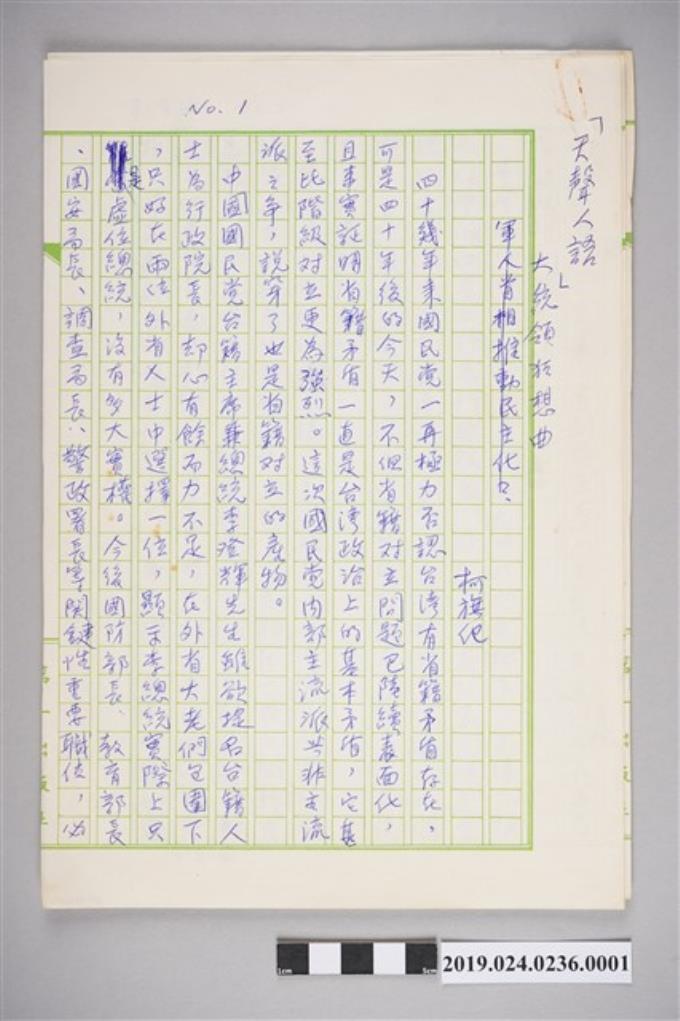 No. 1
「天聲人語」
大統領狂想曲
軍人首相推動民主化?
柯旗化
四十幾年来國民党一再極力否認台湾有省籍矛盾存在，
可是四十年後的今天，不但省籍対立問題已陸續表面化，
且事實証明省籍矛盾一直是台湾政治上的基本矛盾，它甚
至比階級対立更為強烈。這次國民党内部主流派与非主流
派之争，說穿了也是省籍对立的産物。
中國國民党台籍主席兼總統李登輝先生雖欲提名台籍人
士為行政院長，却心有餘而力不足，在外省大老們包圍下
，只好在兩位外省人士中選擇一位，顯示李總統實際上只
是虛位總統，沒有多大實權。今後國防部長、教育部長
、國安局長、調查局長、警政署長等関鍵性重要職位，必
2019.024.0236.0001
1cm
5cm